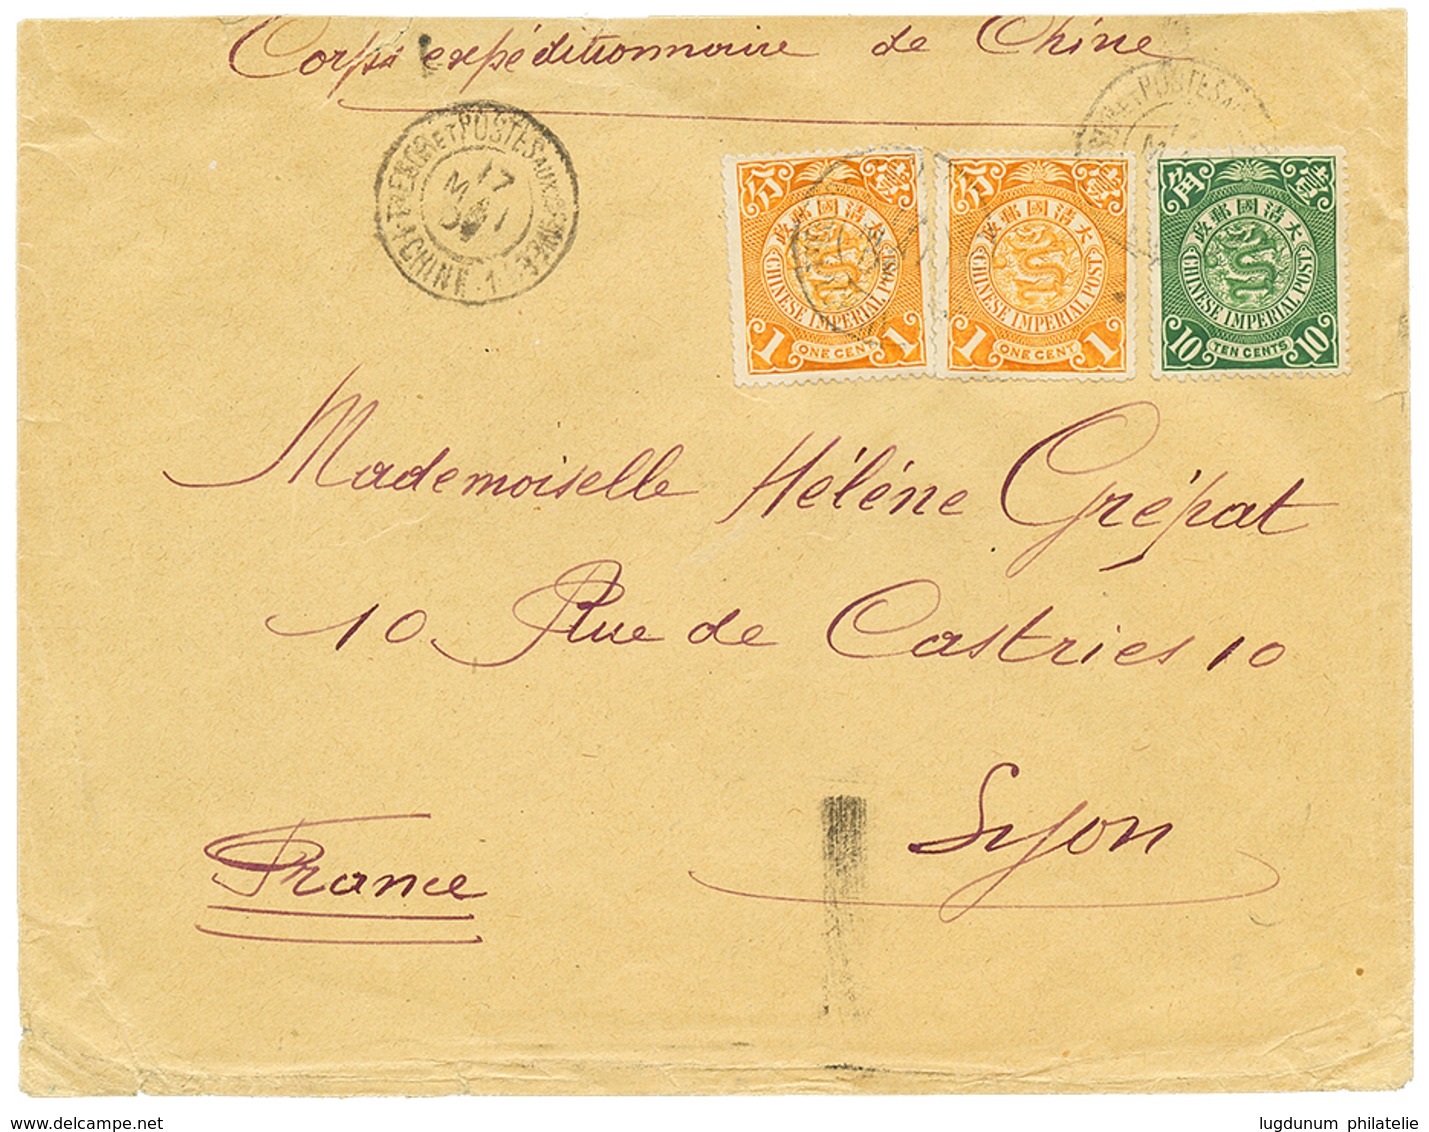 Corps expéditionnaire de Chine
TRESOR ET POSTES AUX ARMEES
17
CHINE 1
ET POSTES AUX
分 壹
大清國郵政
CHINESE IMPERIAL POST
1 ONE CENT 1
分 壹
大清國郵政
CHINESE IMPERIAL POST
1 ONE CENT 1
角 壹
大清國郵政
CHINESE IMPERIAL POST
10 TEN CENTS 10
Mademoiselle Hélène Grépat
10 Rue de Castries 10
Lyon
France
www.delcampe.net
lugdunum philatelie